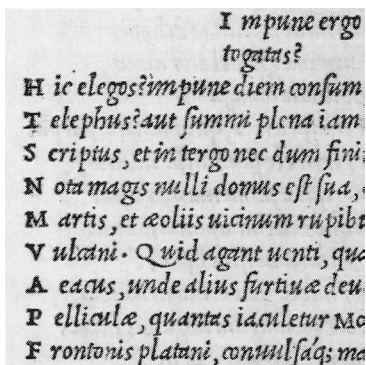 I mpune ergo
togatas?
H ic elegos? impune diem consum
T elephus? aut summi plena iam
S criptus, et in tergo nec dum fini
N ota magis nulli domus est sua,
M artis, et æoliis uicinum rupib
V ulcani. Quid agant uenti, qua
A eacus, unde alius furtiuæ deu
P elliculæ, quantas iaculetur Mo
F rontonis platani, conuulsáq; ma